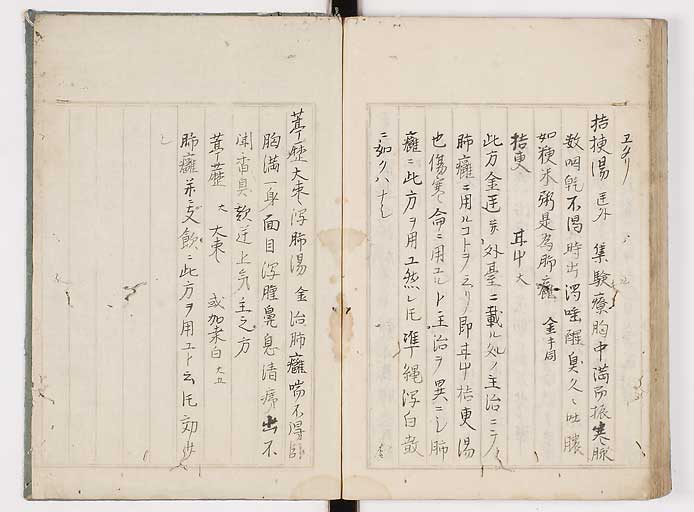 桔梗湯 匡外 集驗療胸中滿而振寒脉
数咽乾不渇時出濁唾醒臭久〻吐膿
如粳米粥是為肺癰 金千同
桔更 甘中 大
此方金匡并外臺ニ載ル処ノ主治ニテ
肺癰ニ用ルコトヲ云リ即甘中桔更湯
也傷寒侖ニ用ユルト主治ヲ異ニシ肺
癰ニ此方ヲ用ユ然レ𪜈準縄瀉白散
ニ如クハナシ
葶歴大枣瀉肺湯 金 治肺癰喘不得臥
胸満一身面目浮腫鼻息清疿出不
聞香臭咳逆上気主之方
葶藶 大 大枣 或加末白 大五
肺癰并支飲ニ此方ヲ用ユト云𪜈効少
シ